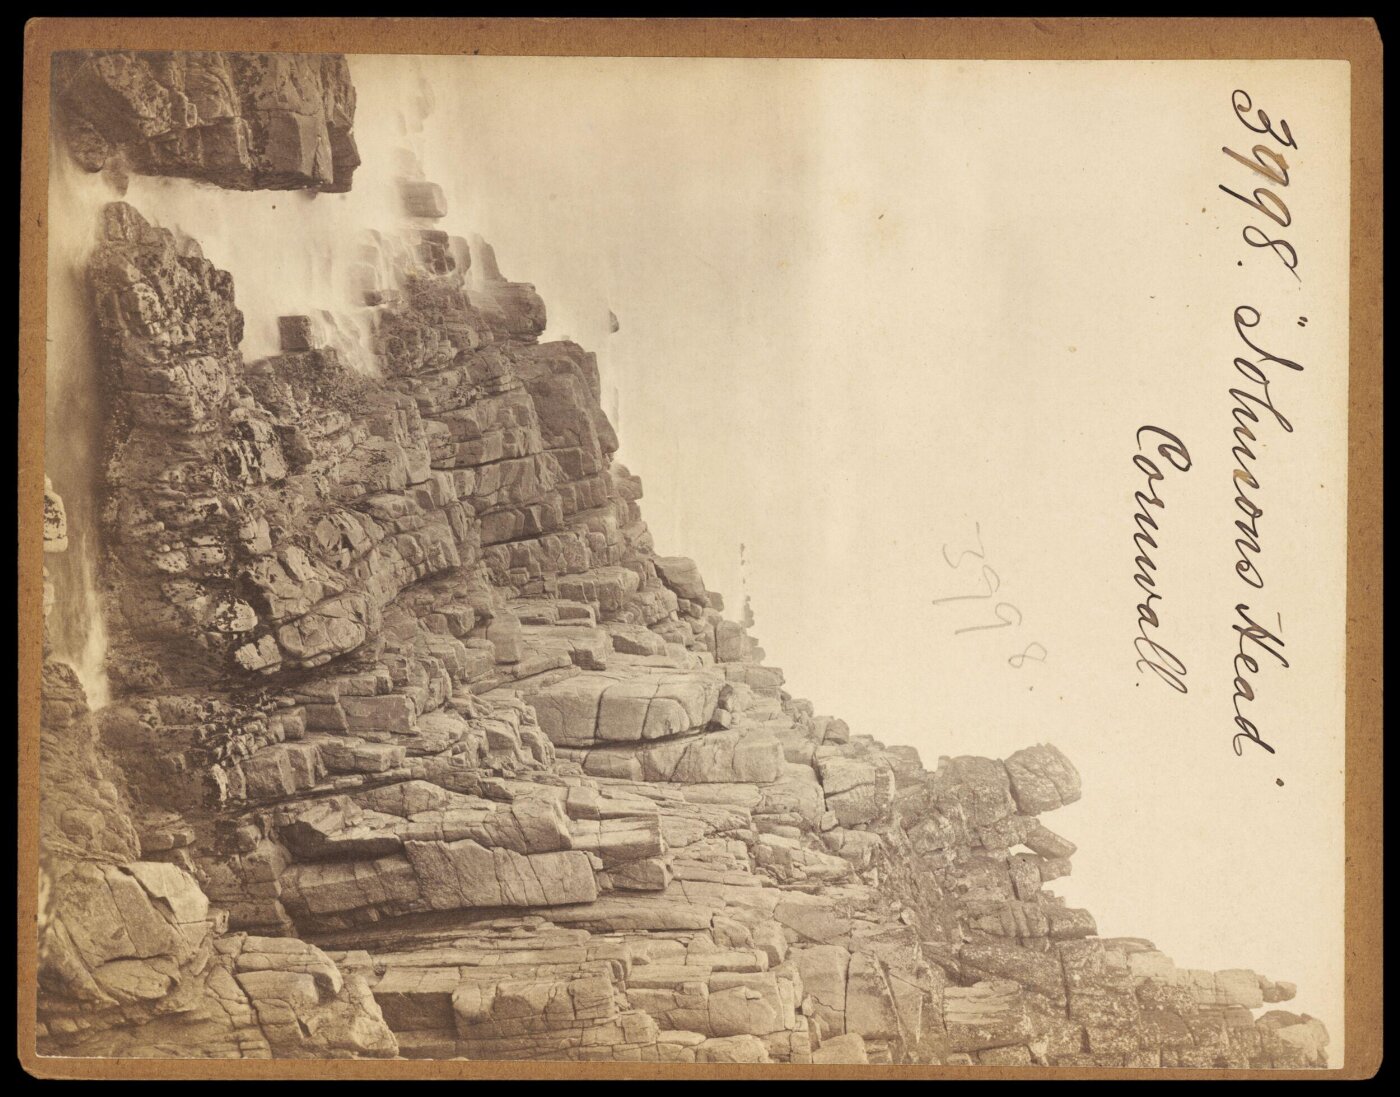 3998. "Johnsons Head".
Cornwall.
3998.